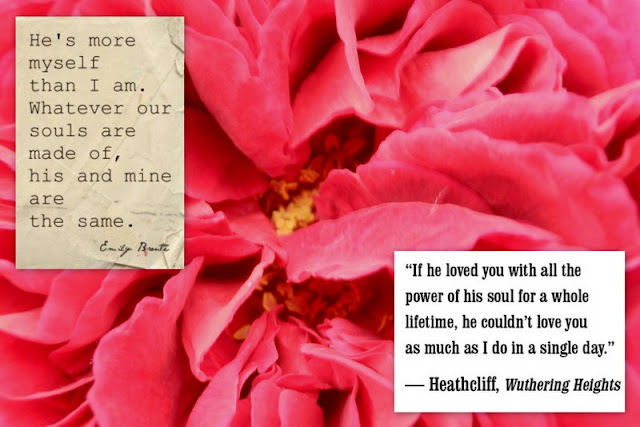 He's more
myself
than I am.
Whatever our
souls are
made of,
his and mine
are
the same.
Emily Bronte
“If he loved you with all the
power of his soul for a whole
lifetime, he couldn’t love you
as much as I do in a single day.”
— Heathcliff, Wuthering Heights